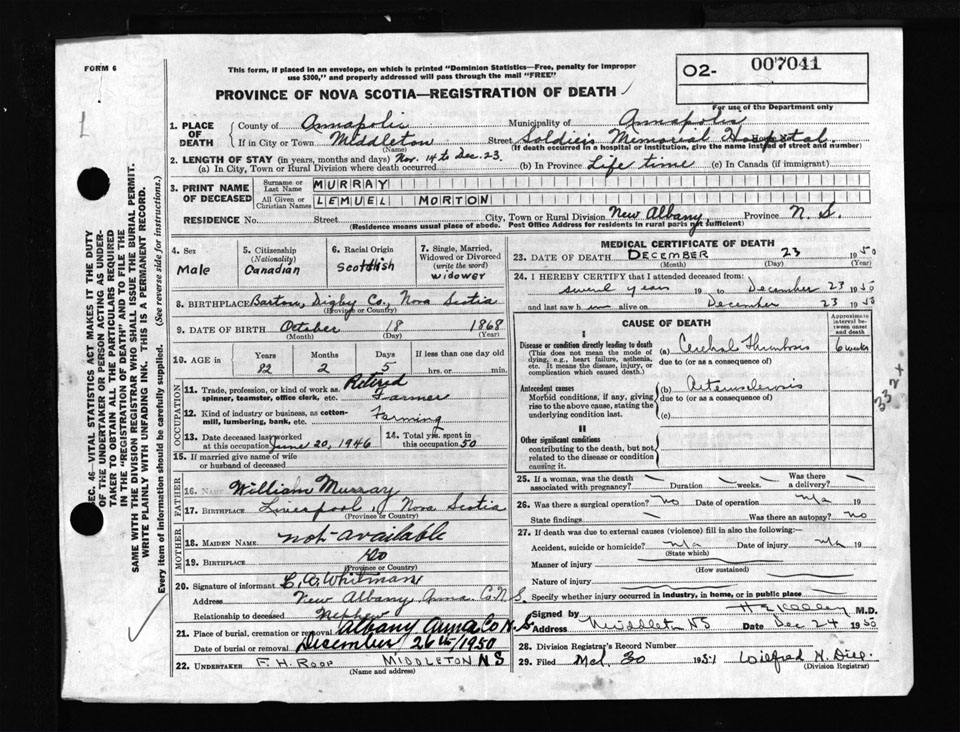 FORM 6
This form, if placed in an envelope, on which is printed "Dominion Statistics—Free, penalty for improper
use $300," and properly addressed will pass through the mail "FREE"
PROVINCE OF NOVA SCOTIA—REGISTRATION OF DEATH
02- 007041
For use of the Department only
1. PLACE OF DEATH
County of Annapolis Municipality of Annapolis
If in City or Town Middleton Street Soldiers Memorial Hospital
(Name) (If death occurred in a hospital or institution, give the name instead of street and number)
2. LENGTH OF STAY (in years, months and days) Nov. 14 to Dec. 23
(a) In City, Town or Rural Division where death occurred (b) In Province Life time (c) In Canada (if immigrant)
3. PRINT NAME OF DECEASED
Surname or Last Name MURRAY
All Given or Christian Names LEMUEL MORTON
RESIDENCE No. Street City, Town or Rural Division New Albany Province N. S.
(Residence means usual place of abode. Post Office Address for residents in rural parts not sufficient)
4. Sex Male
5. Citizenship (Nationality) Canadian
6. Racial Origin Scottish
7. Single, Married, Widowed or Divorced (write the word) widower
8. BIRTHPLACE Barton, Digby Co., Nova Scotia
(Province or Country)
9. DATE OF BIRTH October 18 1868
(Month) (Day) (Year)
10. AGE in Years Months Days If less than one day
82 2 5 hrs. or min.
OCCUPATION
11. Trade, profession, or kind of work as spinner, teamster, office clerk, etc. Retired Farmer
12. Kind of industry or business, as cotton-mill, lumbering, bank, etc. Farming
13. Date deceased last worked at this occupation June 20, 1946
14. Total yrs. spent in this occupation 50
15. If married give name of wife or husband of deceased
FATHER
16. Name William Murray
17. BIRTHPLACE Liverpool, Nova Scotia
(Province or Country)
MOTHER
18. MAIDEN NAME not available
19. BIRTHPLACE do
(Province or Country)
20. Signature of informant L. A. Whitman
Address New Albany Anna. Co. N. S.
Relationship to deceased Nephew
21. Place of burial, cremation or removal Albany Anna Co N. S
Date of burial or removal December 26th/1950
22. UNDERTAKER F. H. Roop MIDDLETON N S
(Name and address)
MEDICAL CERTIFICATE OF DEATH
23. DATE OF DEATH DECEMBER 23 1950
(Month) (Day) (Year)
24. I HEREBY CERTIFY that I attended deceased from:
several years 19 to December 23 1950
and last saw him alive on December 23 1950
CAUSE OF DEATH
Approximate interval between onset and death
I
Disease or condition directly leading to death
(This does not mean the mode of dying, e.g., heart failure, asthenia, etc. It means the disease, injury, or complication which caused death.)
(a) Cerebral Thrombosis 6 weeks
due to (or as a consequence of)
Antecedent causes
Morbid conditions, if any, giving rise to the above cause, stating the underlying condition last.
(b) Arteriosclerosis
due to (or as a consequence of)
(c)
332 +
II
Other significant conditions
contributing to the death, but not related to the disease or condition causing it.
25. If a woman, was the death associated with pregnancy? Duration weeks. Was there a delivery?
26. Was there a surgical operation? No Date of operation n/a 19
State findings Was there an autopsy? no
27. If death was due to external causes (violence) fill in also the following:-
Accident, suicide or homicide? n/a Date of injury n/a 19
(State which)
Manner of injury
(How sustained)
Nature of injury
Specify whether injury occurred in industry, in home, or in public place
Signed by H E Kelley M.D.
Address Middleton NS Date Dec 24 1950
28. Division Registrar's Record Number
29. Filed 30 1951 Wilfred H.
(Division Registrar)
SEC. 46—VITAL STATISTICS ACT MAKES IT THE DUTY
OF THE UNDERTAKER OR PERSON ACTING AS UNDER-
TAKER TO OBTAIN ALL THE PARTICULARS REQUIRED
IN THE "REGISTRATION OF DEATH" AND TO FILE THE
SAME WITH THE DIVISION REGISTRAR WHO SHALL ISSUE THE BURIAL PERMIT.
WRITE PLAINLY WITH UNFADING INK. THIS IS A PERMANENT RECORD.
Every item of information should be carefully supplied. (See reverse side for instructions.)